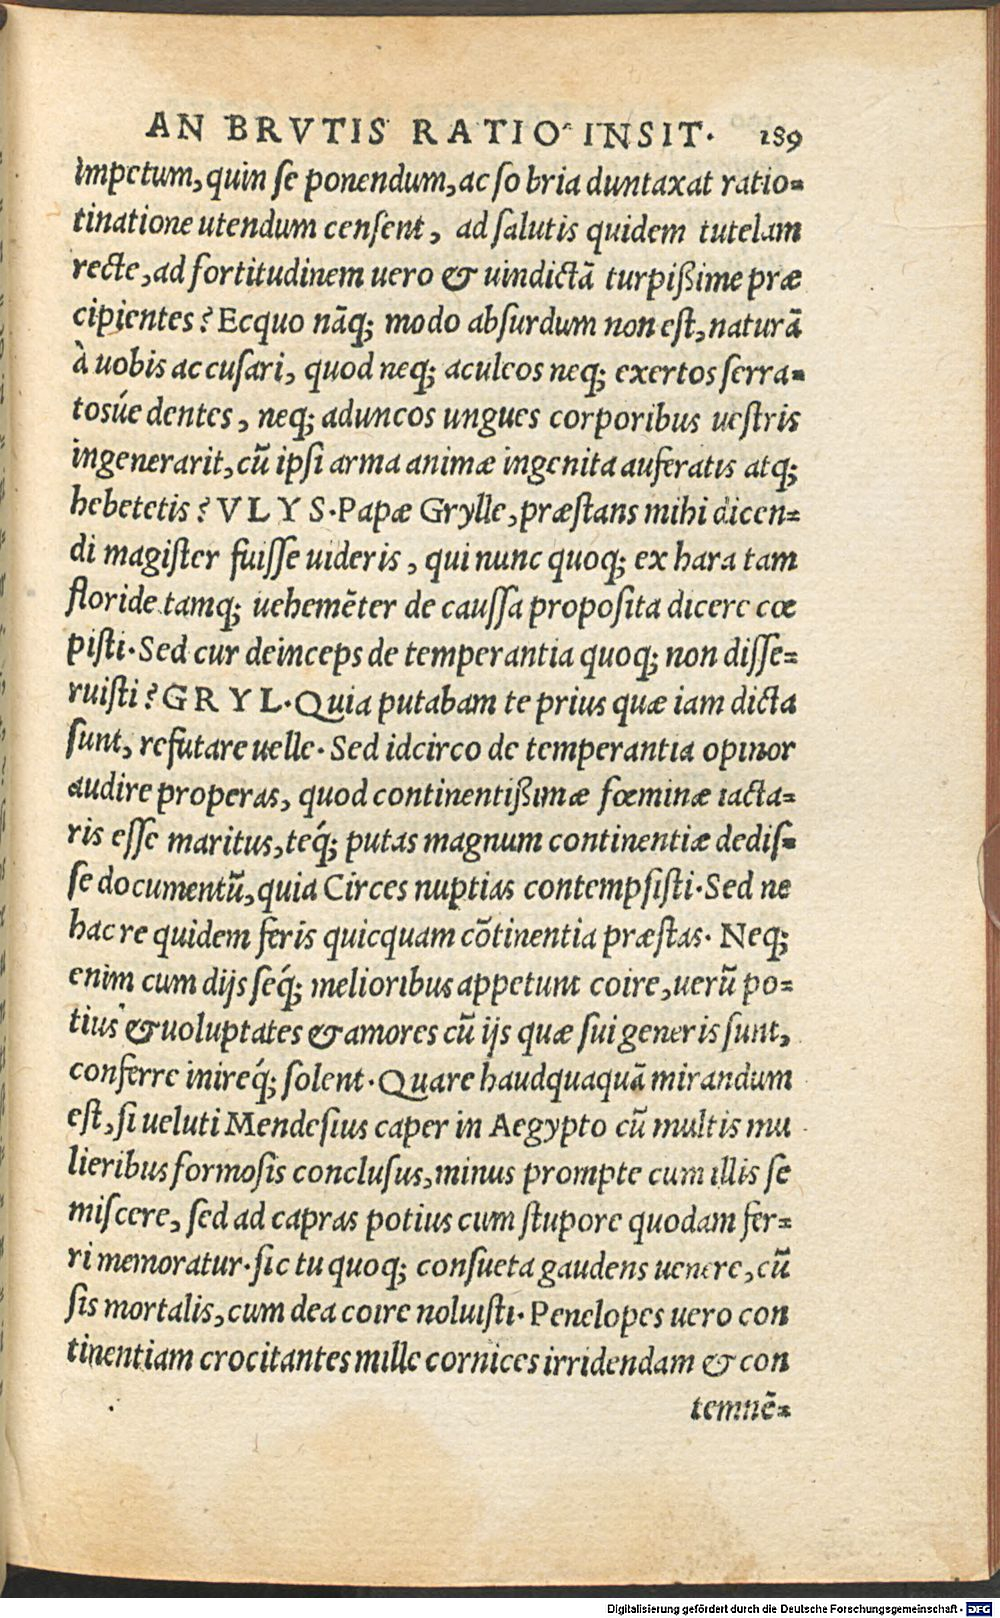 AN BRVTIS RATIO INSIT. 189
impetum, quin se ponendum, ac sobria duntaxat ratio-
tinatione utendum censent, ad salutis quidem tutelam
recte, ad fortitudinem uero & uindictā turpißime præ
cipientes? Ecquo nāq; modo absurdum non est, naturā
à uobis accusari, quod neq; aculeos neq; exertos serra-
tosúe dentes, neq; aduncos ungues corporibus uestris
ingenerarit, cū ipsi arma animæ ingenita auferatis atq;
hebetetis? VLYS. Papæ Grylle, præstans mihi dicen-
di magister fuisse uideris, qui nunc quoq; ex hara tam
floride tamq; uehemēter de caussa proposita dicere cœ
pisti. Sed cur deinceps de temperantia quoq; non disse-
ruisti? GRYL. Quia putabam te prius quæ iam dicta
sunt, refutare uelle. Sed idcirco de temperantia opinor
audire properas, quod continentißimæ fœminæ iacta-
ris esse maritus, teq́; putas magnum continentiæ dedis-
se documentū, quia Circes nuptias contempsisti. Sed ne
hac re quidem feris quicquam cōtinentia præstas. Neq;
enim cum dijs seq́; melioribus appetunt coire, uerū po-
tius & uoluptates & amores cū ijs quæ sui generis sunt,
conferre inireq́; solent. Quare haudquaquā mirandum
est, si ueluti Mendesius caper in Aegypto cū multis mu
lieribus formosis conclusus, minus prompte cum illis se
miscere, sed ad capras potius cum stupore quodam fer-
ri memoratur. sic tu quoq; consueta gaudens uenere, cū
sis mortalis, cum dea coire noluisti. Penelopes uero con
tinentiam crocitantes mille cornices irridendam & con
temnē-
Digitalisierung gefördert durch die Deutsche Forschungsgemeinschaft - DFG